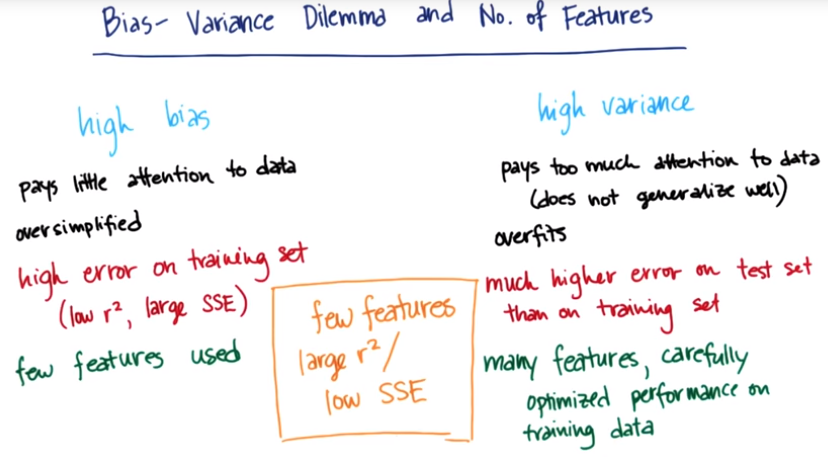 Bias- Variance Dilemma and No. of Features
high bias
pays little attention to data
oversimplified
high error on training set
(low r², large SSE)
few features used
few features
large r²/
low SSE
high variance
pays too much attention to data
(does not generalize well)
overfits
much higher error on test set
than on training set
many features, carefully
optimized performance on
training data